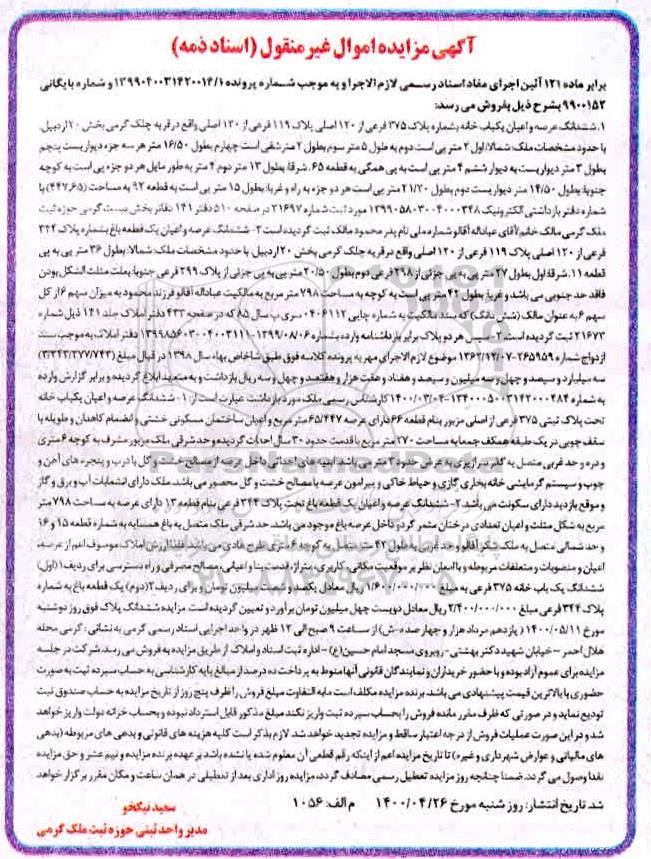 آگهی مزایده اموال غیر منقول (اسناد ذمه)
برابر ماده ۱۲۱ آئین اجرای مفاد اسناد رسمی لازم الاجرا و به موجب شماره پرونده ۱۳۹۹۰۴۰۰۳۱۴۲۰۰۱۴/۱ و شماره بایگانی
۹۹۰۰۱۵۲ بشرح ذیل بفروش می رسد:
۱. ششدانگ عرصه و اعیان یکباب خانه بشماره پلاک ۳۷۵ فرعی از ۱۲۰ اصلی پلاک ۱۱۹ فرعی از ۱۲۰ اصلی واقع در قریه چلک گرمی بخش ۲۰ اردبیل.
با حدود مشخصات ملک: شمالا: اول ۲ متر پی است دوم به طول ۵ متر سوم بطول ۲ متر شقی است چهارم بطول ۱۶/۵۰ متر هر سه جزء دیواریست پنجم
بطول ۳ متر دیواریست به دیوار ششم ۴ متر پی است به پی همگی به قطعه ۶۵. شرقا: بطول ۱۳ متر دوم ۴ متر به طور مایل هر دو جزء پی است به کوچه
جنوبا: بطول ۱۴/۵۰ متر دیواریست دوم بطول ۲۱/۲۰ متر پی است هر دو جزء به راه و غربا: بطول ۱۵ متر پی است به قطعه ۹۲ به مساحت (۴۴۷/۶۵) با
شماره دفتر بازداشتی الکترونیک ۱۳۹۹۰۵۸۰۳۰۰۴۰۰۰۳۴۸ مورد ثبت شماره ۲۱۶۹۷ در صفحه ۵۱۰ دفتر ۱۴۱ دفاتر بخش بیست گرمی حوزه ثبت
ملک گرمی مالک خانم/آقای عباداله آقالو شماره ملی نام پدر محمود مالک ثبت گردیده است ۲- ششدانگ عرصه و اعیان یک قطعه باغ بشماره پلاک ۳۴۴
فرعی از ۱۲۰ اصلی پلاک ۱۱۹ فرعی از ۱۲۰ اصلی واقع در قریه چلک گرمی بخش ۲۰ اردبیل. با حدود مشخصات ملک: شمالا: بطول ۳۶ متر پی به پی
قطعه ۱۱. شرقا: اول بطول ۲۷ متر پی به پی جزئی از ۲۹۸ فرعی دوم بطول ۲۰/۵۰ متر پی به پی جزئی از پلاک ۲۹۹ فرعی جنوبا: بعلت مثلث الشکل بودن
فاقد حد جنوبی می باشد و غربا: بطول ۴۲ متر پی است به کوچه به مساحت ۷۹۸ متر مربع به مالکیت عباداله آقالو فرزند محمود به میزان سهم ۶ از کل
سهم ۶ به عنوان مالک (شش دانگ) که سند مالکیت به شماره چاپی ۰۴۰۶۱۱۲ سری ب سال ۸۵ که در صفحه ۴۳۳ دفتر املاک جلد ۱۴۱ ذیل شماره
۲۱۶۷۳ ثبت گردیده است. ۲- سپس هر دو پلاک برابر بازداشنامه وارده بشماره ۱۳۹۹/۰۸/۰۶-۱۳۹۹۸۵۶۰۳۰۰۴۰۰۳۱۱۱ دفتر املاک به موجب سند
ازدواج شماره ۲۶۵۹۵۹-۱۳۶۲/۱۲/۰۷ موضوع لازم الاجرای مهریه به پرونده کلاسه فوق طبق شاخص بهاء سال ۱۳۹۸ در قبال مبلغ (۳/۳۴۳/۳۷۷/۷۴۳)
سه میلیارد و سیصد و چهل و سه میلیون و سیصد و هفتاد و هفت هزار و هفتصد و چهل و سه ریال بازداشت و به متعهد ابلاغ گردیده و برابر گزارش وارده
به شماره ۱۴۰۰/۰۳/۰۴-۱۴۰۰۰۵۰۰۳۱۴۲۰۰۰۴۸۴ کارشناس رسمی ملک مورد بازداشت عبارت است از: ۱- ششدانگ عرصه و اعیان یکباب خانه
تحت پلاک ثبتی ۳۷۵ فرعی از اصلی مزبور بنام قطعه ۶۶ دارای عرصه ۶۵/۴۴۷ متر مربع و اعیان ساختمان مسکونی خشتی و انضمام کاهدان و طویله با
سقف چوبی در یک طبقه همکف جمعا به مساحت ۲۷۰ متر مربع با قدمت حدود ۳۰ سال احداث گردیده و حد شرقی ملک مزبور مشرف به کوچه ۶ متری
و دره و حد غربی متصل به گذر سرازیری به عرض حدود ۳ متر می باشد ابنیه های احداثی داخل عرصه از مصالح خشت و گل با درب و پنجره های آهن و
چوب و سیستم گرمایشی خانه بخاری گازی و حیاط خاکی و پیرامون عرصه با مصالح خشت و گل محصور می باشد. ملک دارای انشعابات آب و برق و گاز
و موقع بازدید دارای سکونت می باشد. ۲- ششدانگ عرصه و اعیان یک قطعه باغ تحت پلاک ۳۴۴ فرعی بنام قطعه ۱۳ دارای عرصه به مساحت ۷۹۸ متر
مربع به شکل مثلث و اعیان تعدادی درختان مثمر گردو داخل عرصه باغ موجود می باشد. حد شرقی ملک متصل به باغ همسایه به شماره قطعه ۱۵ و ۱۶
و حد شمالی متصل به ملک شکر آقالو و حد غربی به طول ۴۲ متر متصل به کوچه ۶ متری طرح هادی می باشد. لذا ارزش املاک موصوف اعم از عرصه،
اعیان و منصوبات و متعلقات مربوطه و با امعان نظر بر موقعیت مکانی، کاربری، متراژ، قدمت بنا و اعیانی، مصالح مصرفی و راه دسترسی برای ردیف ۱ (اول)
ششدانگ یک باب خانه ۳۷۵ فرعی به مبلغ ۱/۶۰۰/۰۰۰/۰۰۰ ریال معادل یکصد و شصت میلیون تومان و برای ردیف ۲ (دوم) یک قطعه باغ به شماره
پلاک ۳۴۴ فرعی مبلغ ۲/۴۰۰/۰۰۰/۰۰۰ ریال معادل دویست چهل میلیون تومان برآورد و تعیین گردیده است. مزایده ششدانگ پلاک فوق روز دوشنبه
مورخ ۱۴۰۰/۰۵/۱۱ (یازدهم مرداد هزار و چهار صد ه-ش) از ساعت ۹ صبح الی ۱۲ ظهر در واحد اجرایی اسناد رسمی گرمی به نشانی: گرمی محله
هلال احمر – خیابان شهید دکتر بهشتی - روبروی مسجد امام حسین(ع) - اداره ثبت اسناد و املاک از طریق مزایده به فروش می رسد. شرکت در جلسه
مزایده برای عموم آزاد بوده و با حضور خریداران و نمایندگان قانونی آنها منوط به پرداخت ده درصد از مبالغ پایه کارشناسی به حساب سپرده ثبت به صورت
حضوری با بالاترین قیمت پیشنهادی می باشد. برنده مزایده مکلف است مابه التفاوت مبلغ فروش را ظرف پنج روز از تاریخ مزایده به حساب صندوق ثبت
تودیع نماید و در صورتی که ظرف مقرر مانده فروش را بحساب سپرده ثبت واریز نکند مبلغ مذکور قابل استرداد نبوده و بحساب خزانه دولت واریز خواهد
شد و در این صورت عملیات فروش از درجه اعتبار ساقط و مزایده تجدید خواهد شد. لازم بذکر است کلیه هزینه های قانونی و بدهی های مربوطه (بدهی
های مالیاتی و عوارض شهرداری و غیره) تا تاریخ مزایده اعم از اینکه رقم قطعی آن معلوم شده یا نشده باشد بر عهده برنده مزایده و نیم عشر و حق مزایده
نقدا وصول می گردد. ضمنا چنانچه روز مزایده تعطیل رسمی مصادف گردد، مزایده روز اداری بعد از تعطیلی در همان ساعت و مکان مقرر برگزار خواهد
شد. تاریخ انتشار: روز شنبه مورخ ۱۴۰۰/۰۴/۲۶ م الف: ۱۰۵۶
سعید نیکخو
مدیر واحد ثبتی حوزه ثبت ملک گرمی